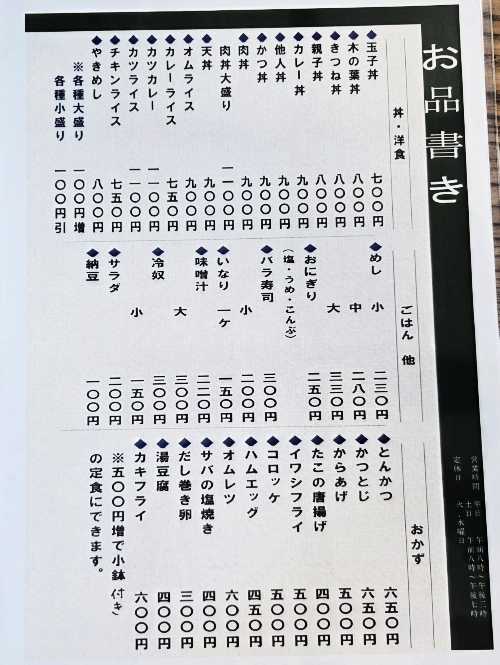 お品書き
営業時間 平日 午前八時～午後二時
土日 午前八時～午後七時
定休日 火・水曜日
丼・洋食
◆玉子丼 七〇〇円
◆木の葉丼 八〇〇円
◆きつね丼 八〇〇円
◆親子丼 八〇〇円
◆カレー丼 九〇〇円
◆他人丼 九〇〇円
◆かつ丼 九〇〇円
◆肉丼 九〇〇円
肉丼大盛り 一一〇〇円
◆天丼 九〇〇円
◆オムライス 九〇〇円
◆カレーライス 七五〇円
◆カツカレー 一一〇〇円
◆カツライス 一一〇〇円
◆チキンライス 七五〇円
◆やきめし 八〇〇円
※各種大盛り 一〇〇円増
各種小盛り 一〇〇円引
ごはん 他
◆めし 小 二三〇円
中 二八〇円
大 三三〇円
◆おにぎり 二五〇円
（塩・うめ・こんぶ）
◆バラ寿司 三〇〇円
小 二〇〇円
◆いなり 一ケ 一五〇円
◆味噌汁 二二〇円
大 三〇〇円
◆冷奴 三〇〇円
小 一五〇円
◆サラダ 二〇〇円
◆納豆 一〇〇円
おかず
◆とんかつ 六五〇円
◆かつとじ 六五〇円
◆からあげ 五〇〇円
◆たこの唐揚げ 四〇〇円
◆イワシフライ 五〇〇円
◆コロッケ 五〇〇円
◆ハムエッグ 四五〇円
◆オムレツ 六〇〇円
◆サバの塩焼き 四〇〇円
◆だし巻き卵 三〇〇円
◆湯豆腐 四〇〇円
◆カキフライ 六〇〇円
※五〇〇円増で小鉢（付き）
の定食にできます。